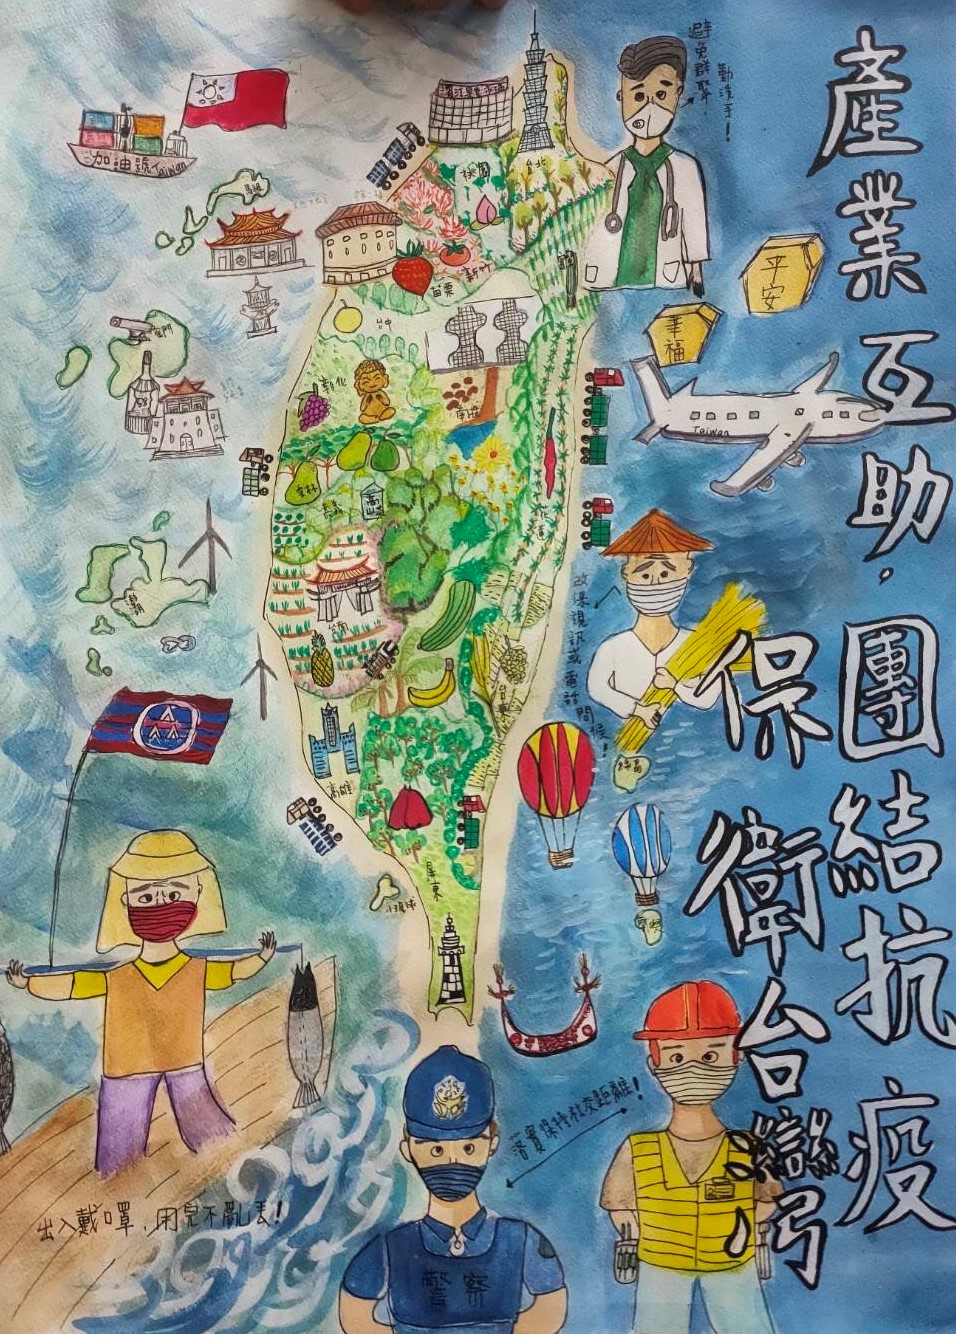 產業互助，團結抗疫
保衛台灣
避免群聚，
勤洗手！
加油號Taiwan
馬祖
台北
桃園
新竹
苗栗
平安
幸福
Taiwan
台中
彰化
南投
金門
雲林
嘉義
高山茶
花蓮
台南
台東
澎湖
改採視訊或電話問候！
綠島
蘭嶼
高雄
屏東
小琉球
落實保持社交距離！
出入戴口罩，用完不亂丟！
警察